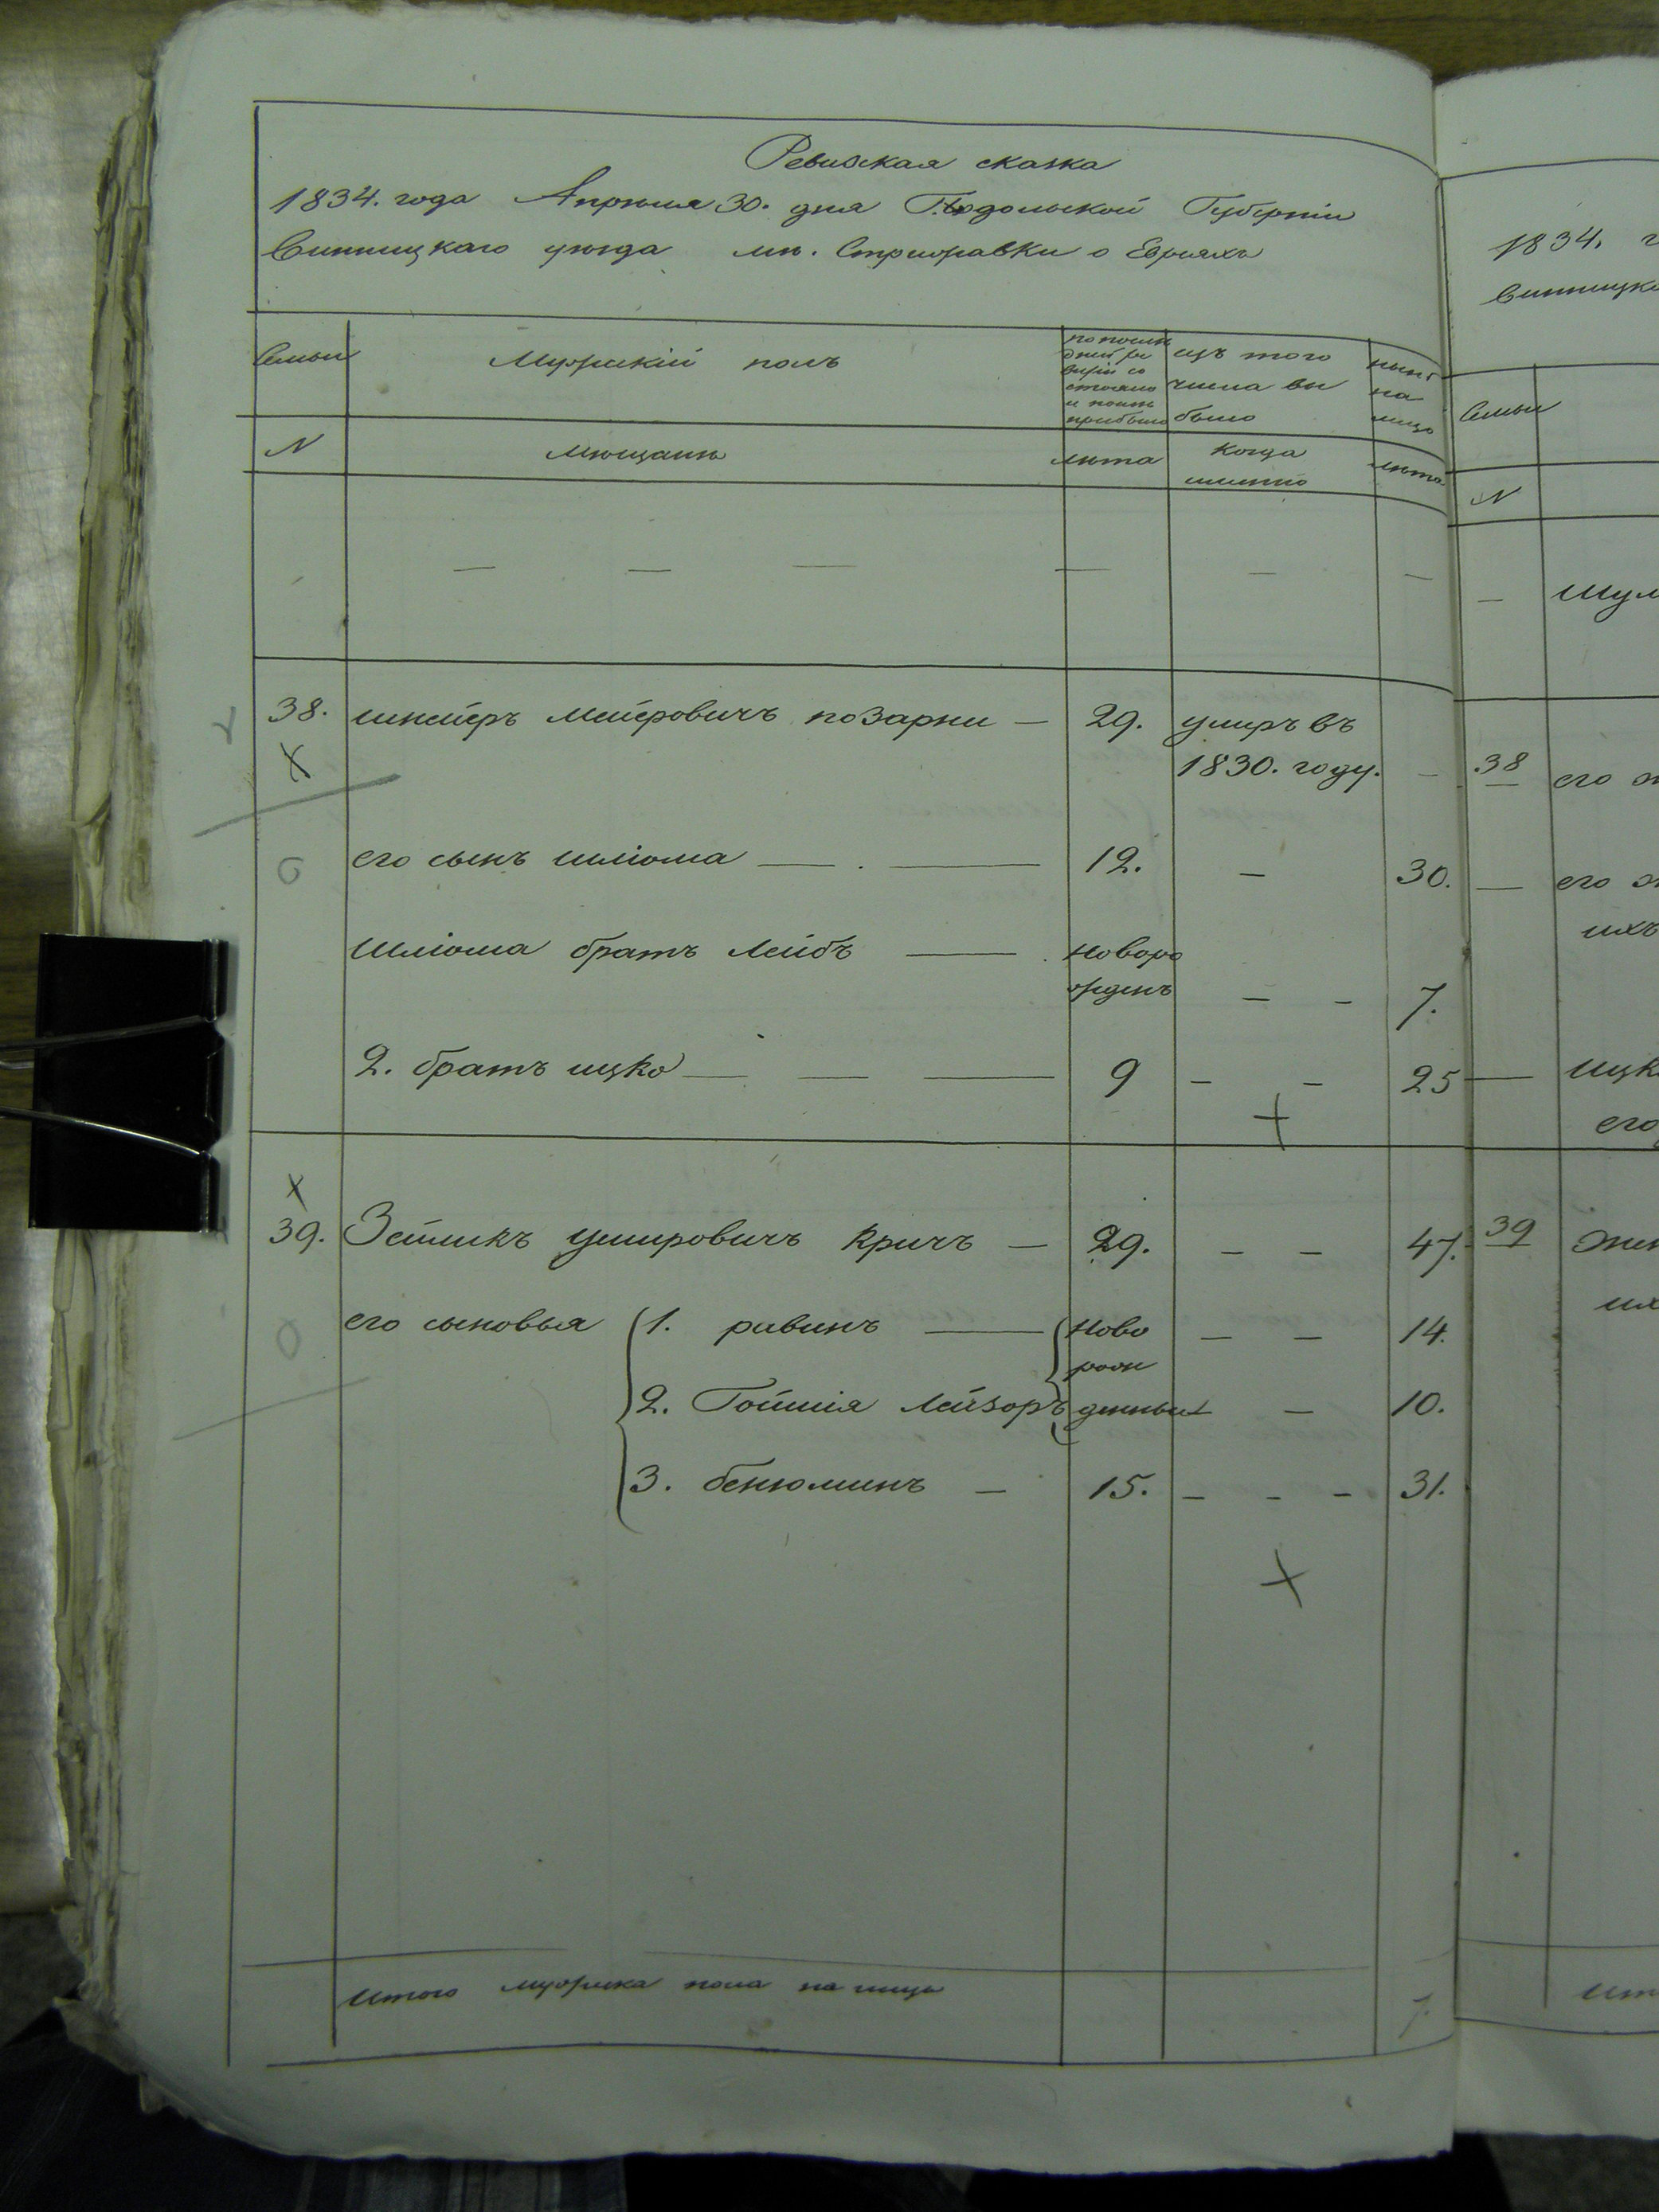 Ревизская сказка
1834. года Апреля 30. дня Подольской Губерніи
Винницкаго уезда мѣ. Стрижавки о Евреяхъ
Семьи
Мужескій полъ
по послѣ
дней ре
визіи со
стояло
и послѣ
прибыло
изъ того
числа вы
было
нынѣ
на
лицо
N
Мѣщанѣ
лѣта
Когда
имянно
лѣта
38. Мейеровичъ позарни — 29. умиръ въ
1830. году. —
его сынъ шліома — — 12. — 30.
Шліома братъ Лейбъ — новоро
жденъ — — 7.
2. братъ ицко — — — 9 — — 25
39. Зейликъ Умировичъ Кричъ — 29. — — 47.
его сыновья 1. рувинъ — ново — — 14.
рож
2. Гойшія Лейзоръ денные — 10.
3. бенюминъ — 15. — — — 31.
Итого мужеска пола на лицо 7.
1834. г
Винницка
Семьи
N
— Шул
38 его ж
— его ж
ихъ
— Ицк
его
39 жен
их
Ито